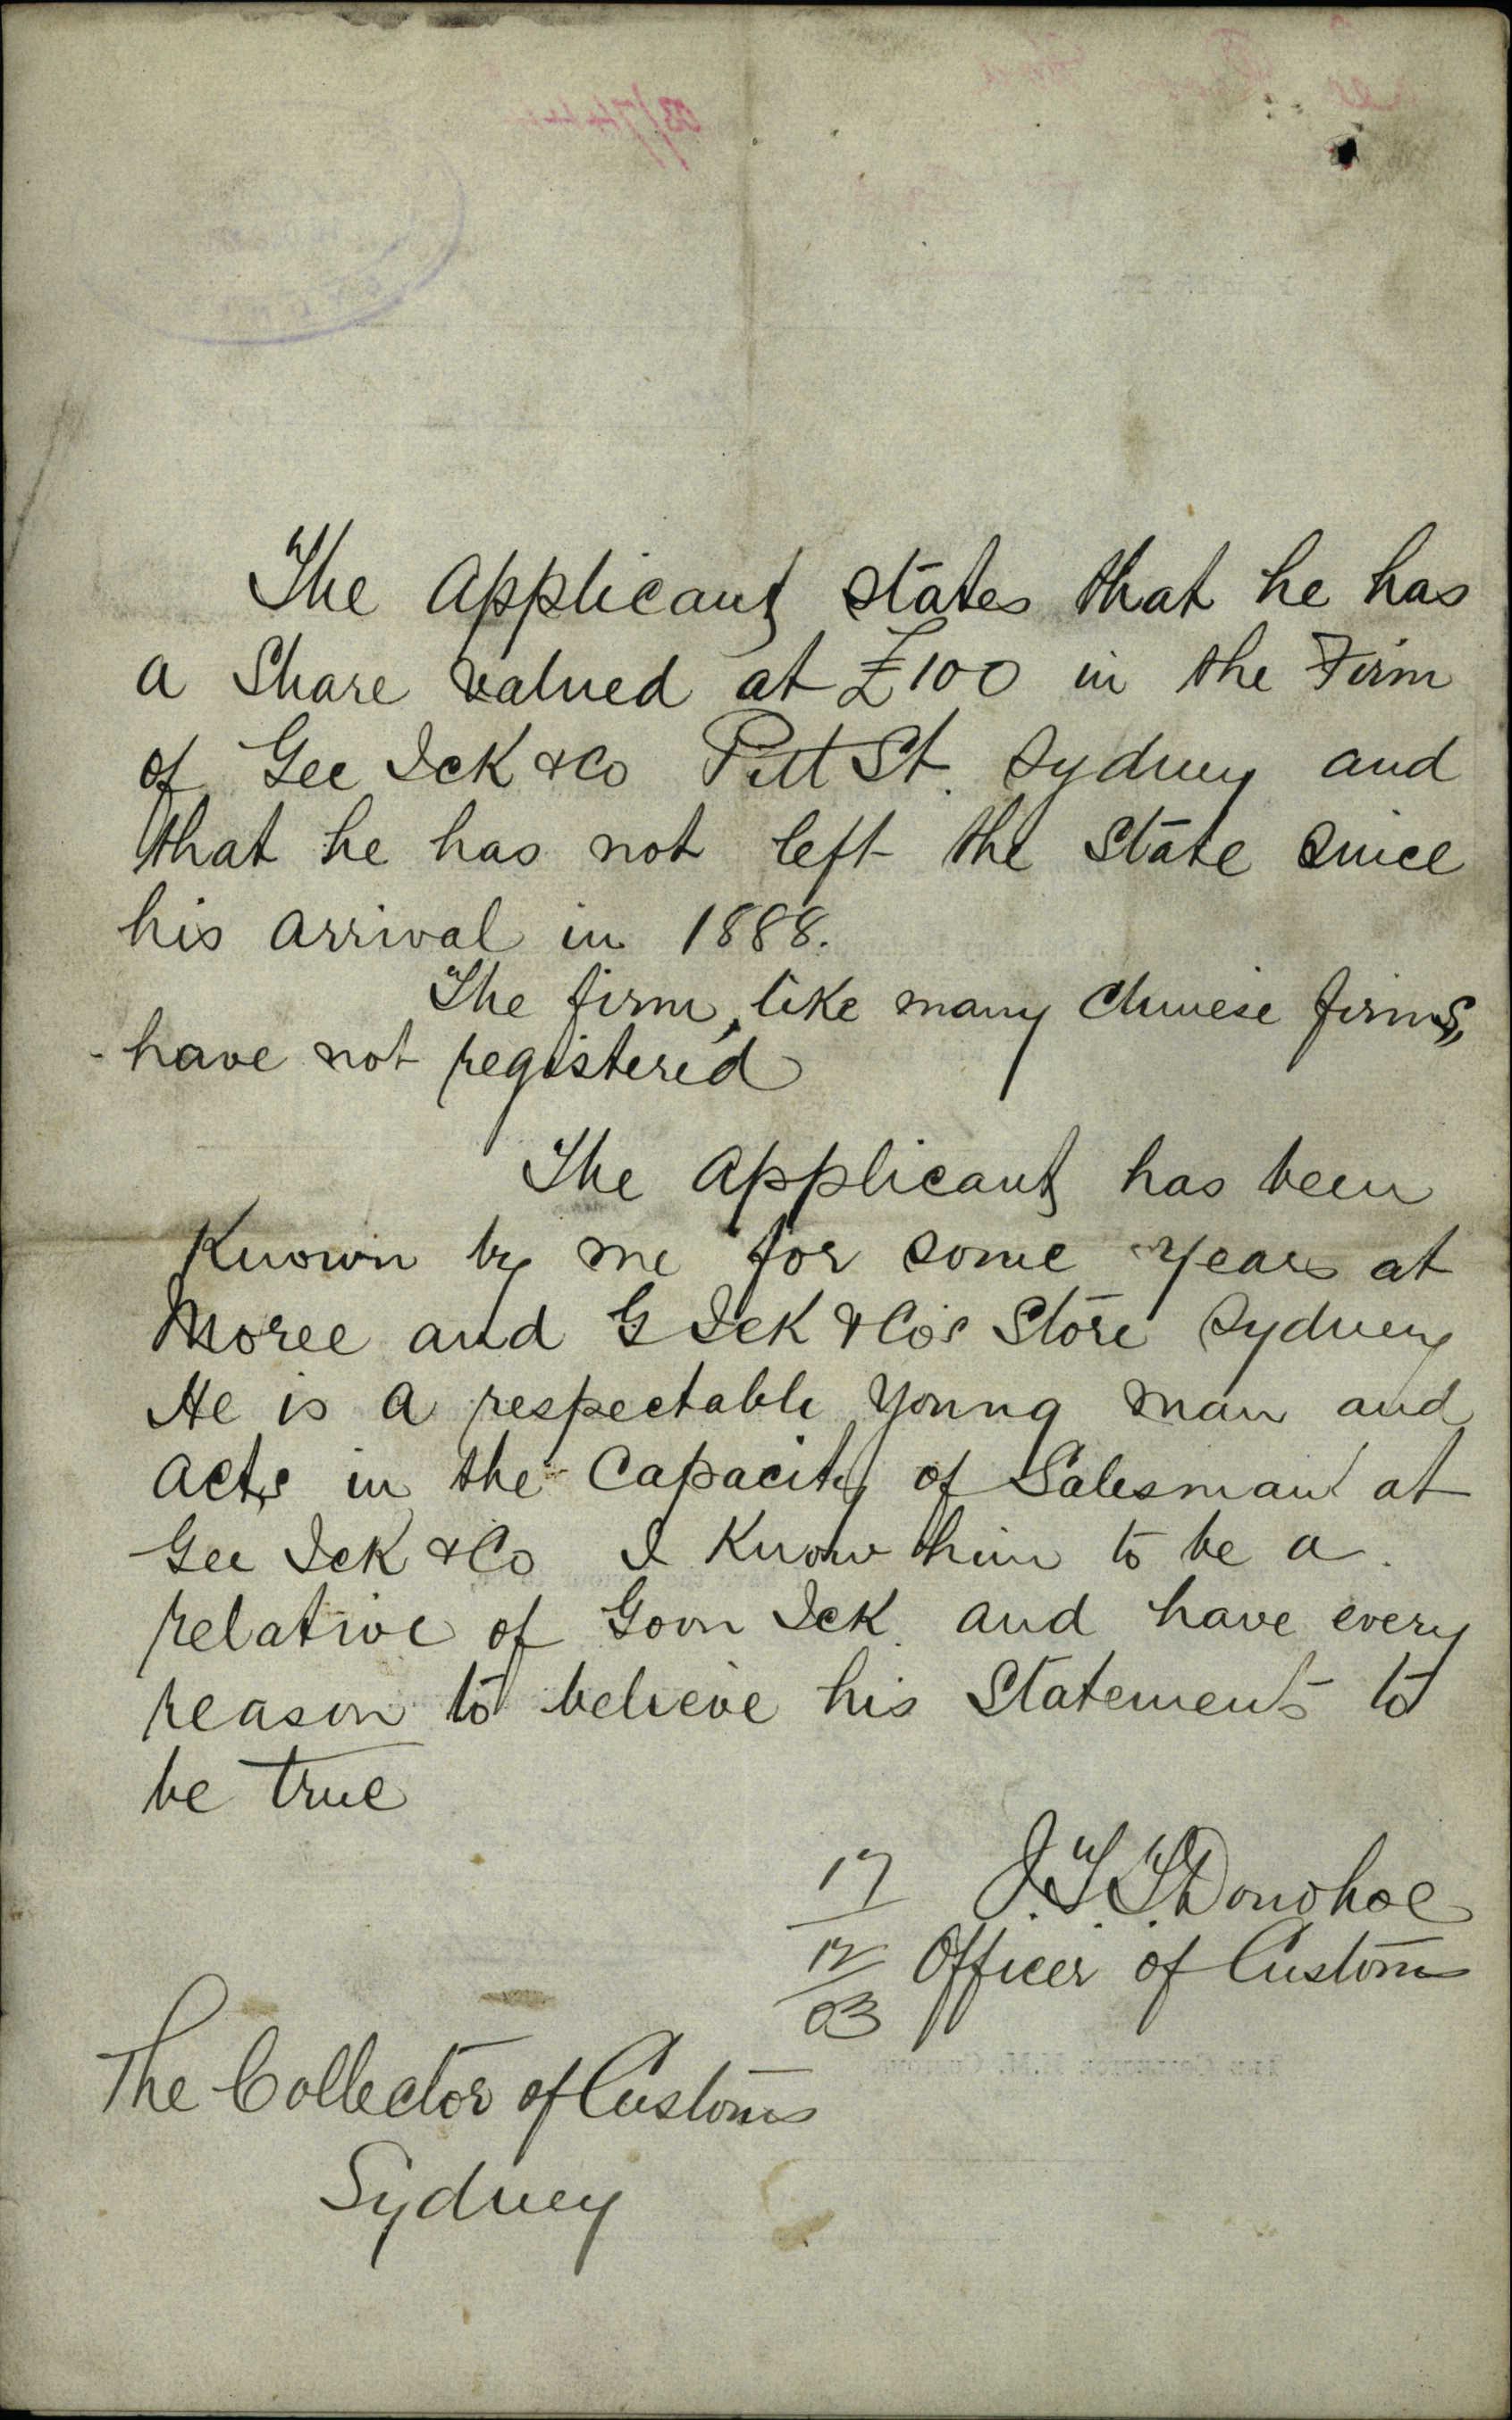 The Applicant states that he has
a Share valued at £100 in the Firm
of Gee Ick & Co Pitt St. Sydney and
that he has not left the State since
his arrival in 1888.
The firm, like many Chinese firms,
have not registered
The Applicant has been
Known by me for some years at
Moree and G Ick & Co's Store Sydney
He is a respectable young man and
acts in the Capacity of Salesman at
Gee Ick & Co I Know him to be a
relative of Goon Ick and have every
reason to believe his Statements to
be true
17 J.T.T. Donohoe
12 Officer of Customs
03
The Collector of Customs
Sydney